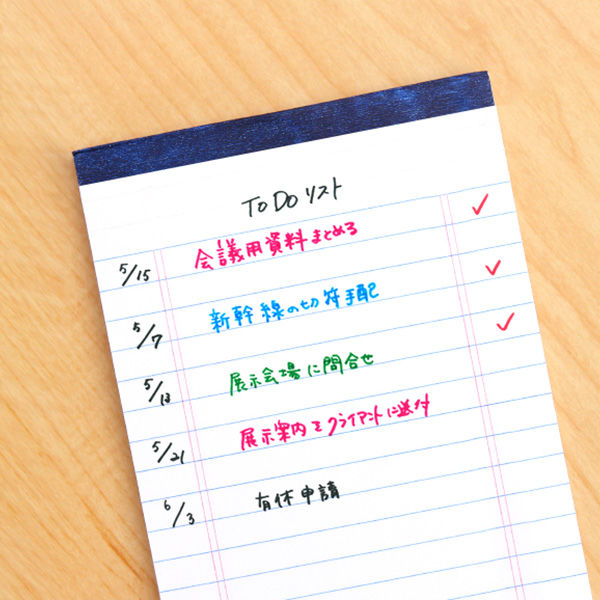 To Do リスト
5/15 会議用資料まとめる
5/7 新幹線の切符手配
5/18 展示会場に問合せ
5/21 展示案内をクライアントに送付
6/3 有休申請